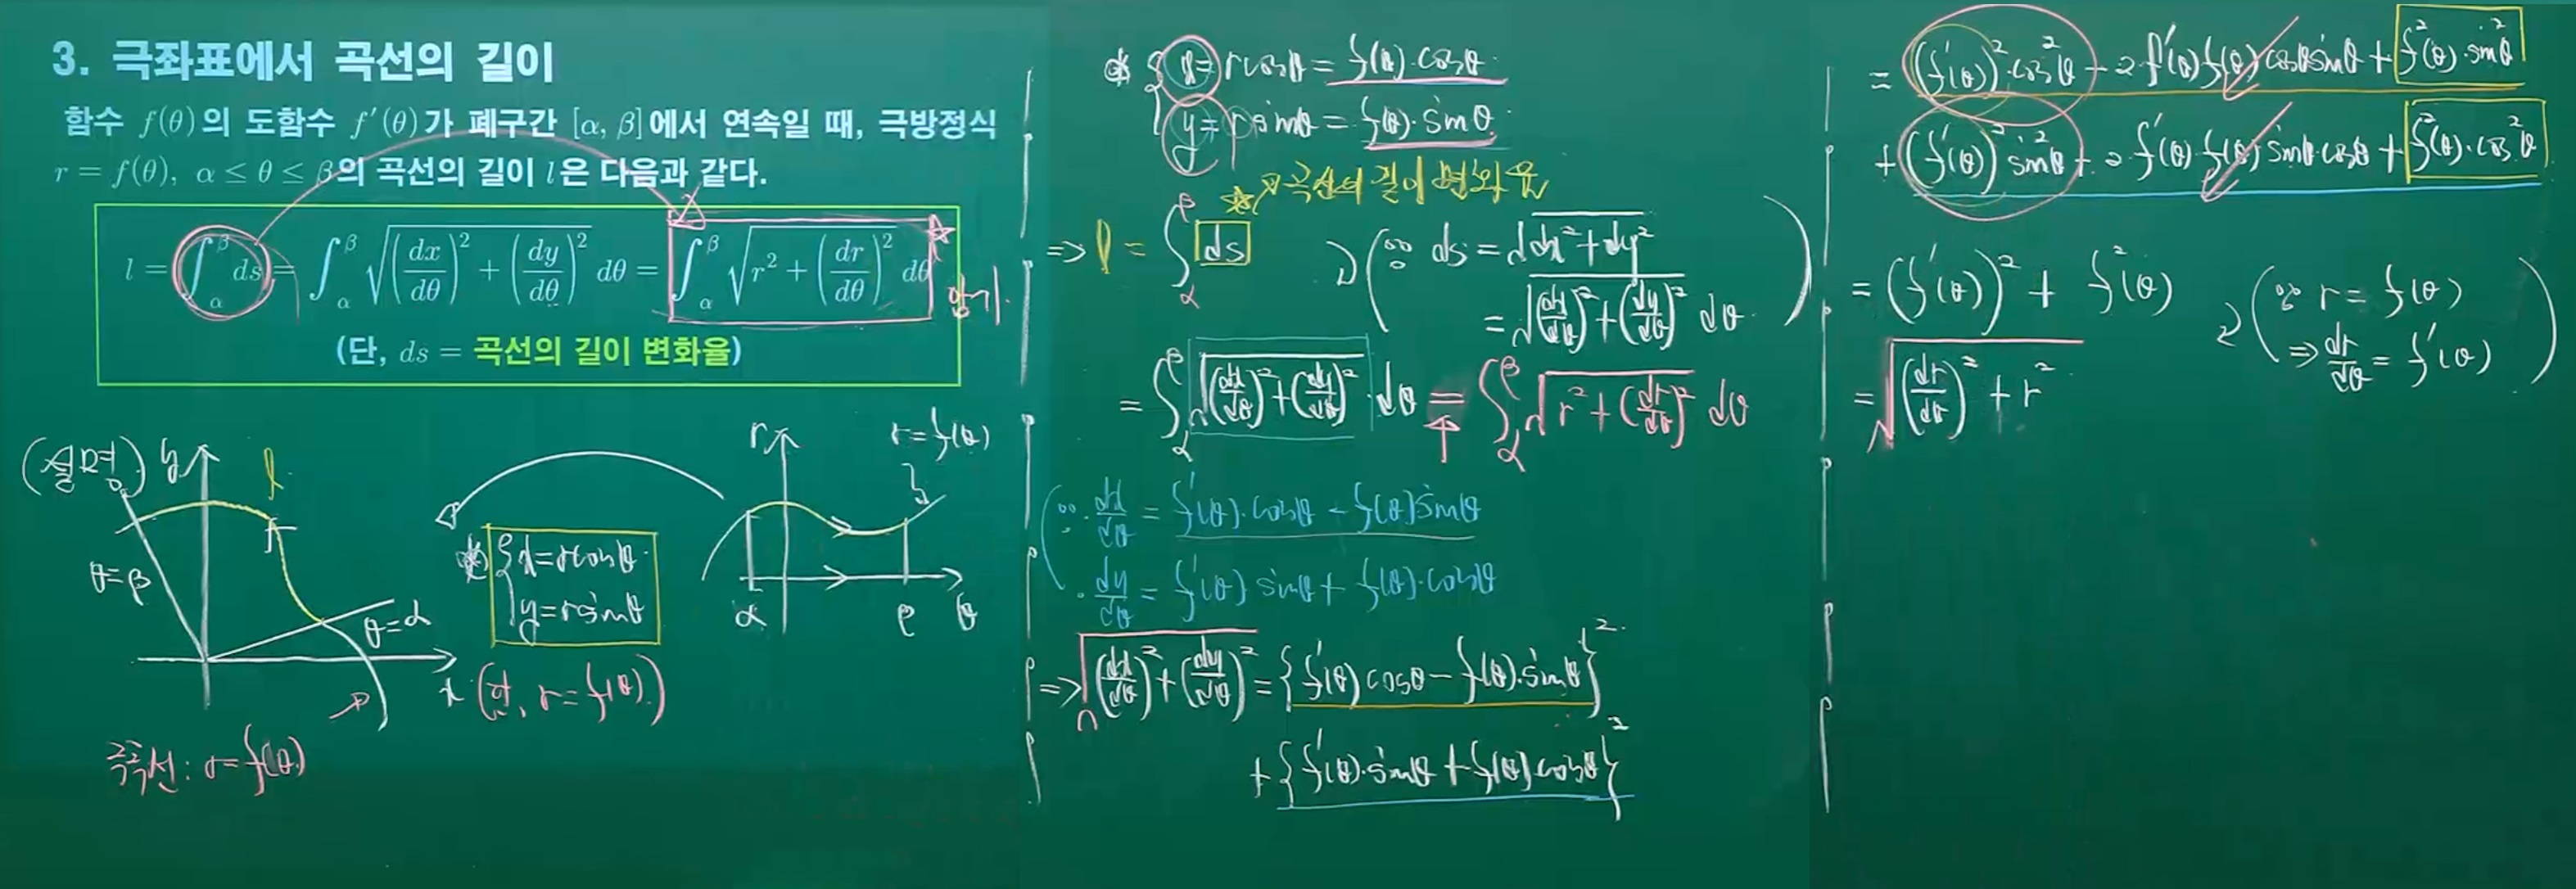 3. 극좌표에서 곡선의 길이
함수 f(θ)의 도함수 f′(θ)가 폐구간 [α, β]에서 연속일 때, 극방정식
r = f(θ), α ≤ θ ≤ β의 곡선의 길이 l은 다음과 같다.
l = ∫_α^β ds = ∫_α^β √((dx/dθ)² + (dy/dθ)²) dθ = ∫_α^β √(r² + (dr/dθ)²) dθ
암기
(단, ds = 곡선의 길이 변화율)
(설명)
y
l
θ=β
θ=α
x
극곡선: r=f(θ)
x=rcosθ
y=rsinθ
(단, r=f(θ))
r
r=f(θ)
α
β
θ
x = rcosθ = f(θ)·cosθ
y = rsinθ = f(θ)·sinθ
곡선의 길이 변화율
⇒ l = ∫_α^β ds (∵ ds = √(dx²+dy²)
= √((dx/dθ)²+(dy/dθ)²) dθ)
= ∫_α^β √((dx/dθ)²+(dy/dθ)²)·dθ = ∫_α^β √(r²+(dr/dθ)²) dθ
(∵ · dx/dθ = f′(θ)·cosθ - f(θ)sinθ
· dy/dθ = f′(θ) sinθ + f(θ)·cosθ
⇒ √((dx/dθ)²+(dy/dθ)²) = {f′(θ) cosθ - f(θ)·sinθ}²
+ {f′(θ)·sinθ + f(θ)cosθ}²
= (f′(θ))²·cos²θ - 2f′(θ)f(θ)cosθsinθ + f²(θ)·sin²θ
+ (f′(θ))² sin²θ + 2f′(θ)·f(θ) sinθ·cosθ + f²(θ)·cos²θ
= (f′(θ))² + f²(θ) (∵ r = f(θ)
⇒ dr/dθ = f′(θ))
= √((dr/dθ)² + r²)